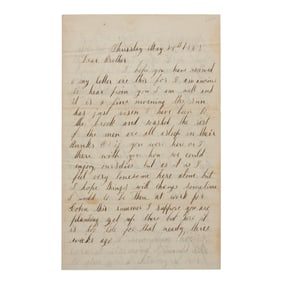 Thursday May 28th 1863
Dear Brother
I hope you have received
my letter are this for I am anxious
to hear from you I am well and
it is a fine morning the sun
has just risen I have been to
the brook and washed the rest
of the men are all asleep in their
bunks if you were here or I
there with you how we could
enjoy ourselves but as it is I
feel very lonesome here alone but
I hope things will change sometime
I would to be then at work for
this summer I suppose you are
planting get up there but here it
is too late for that nearly three
weeks ago